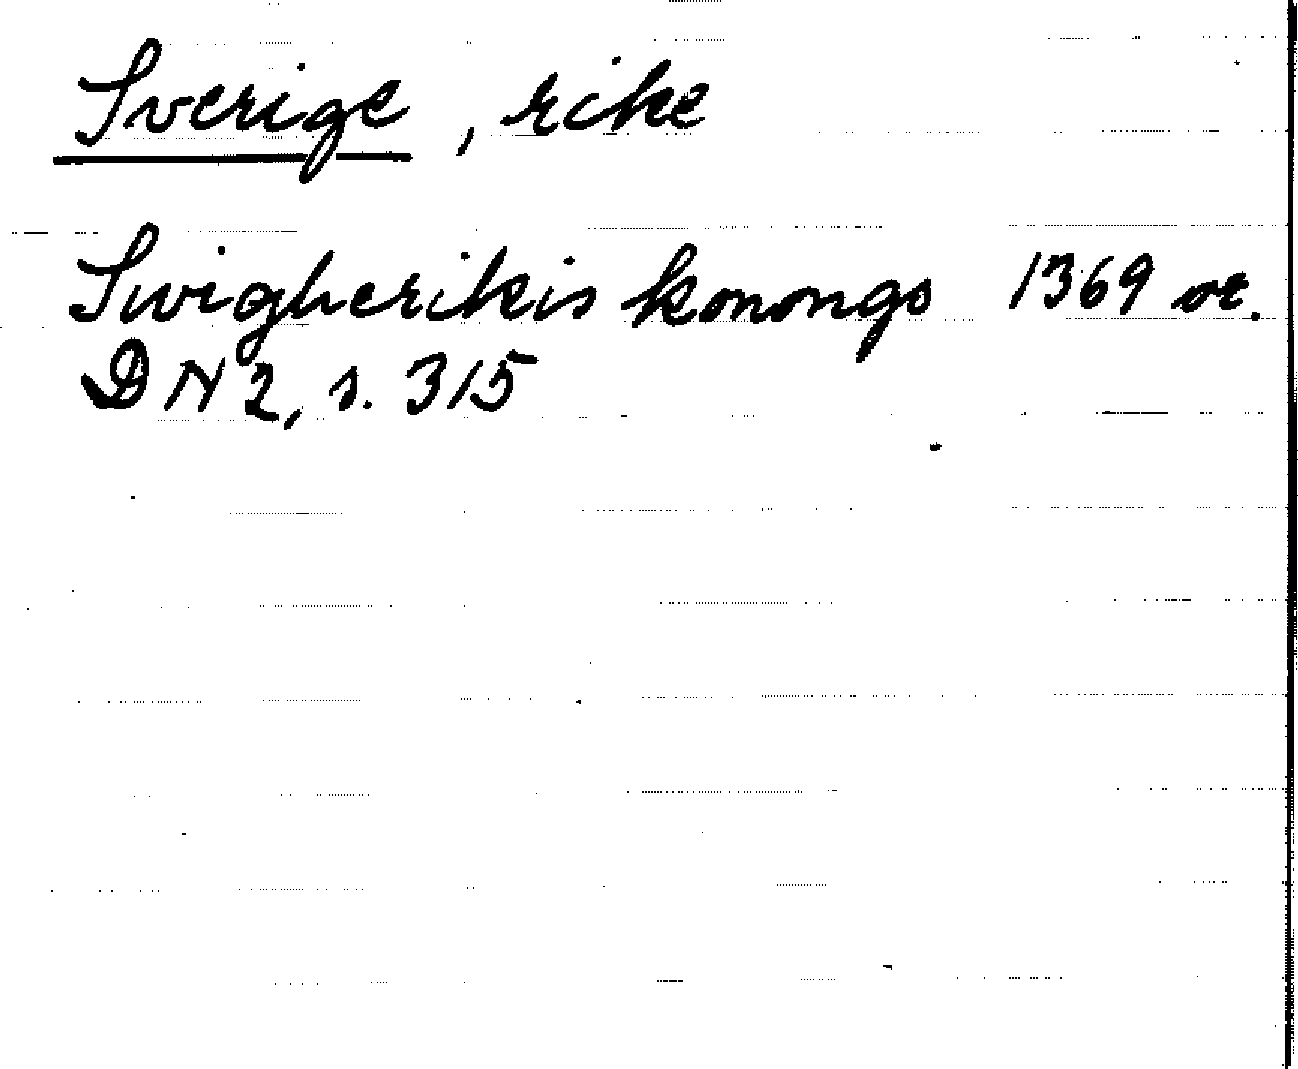 Sverige, rike
Swigherikis konongs 1369 or.
DN 2, s. 315